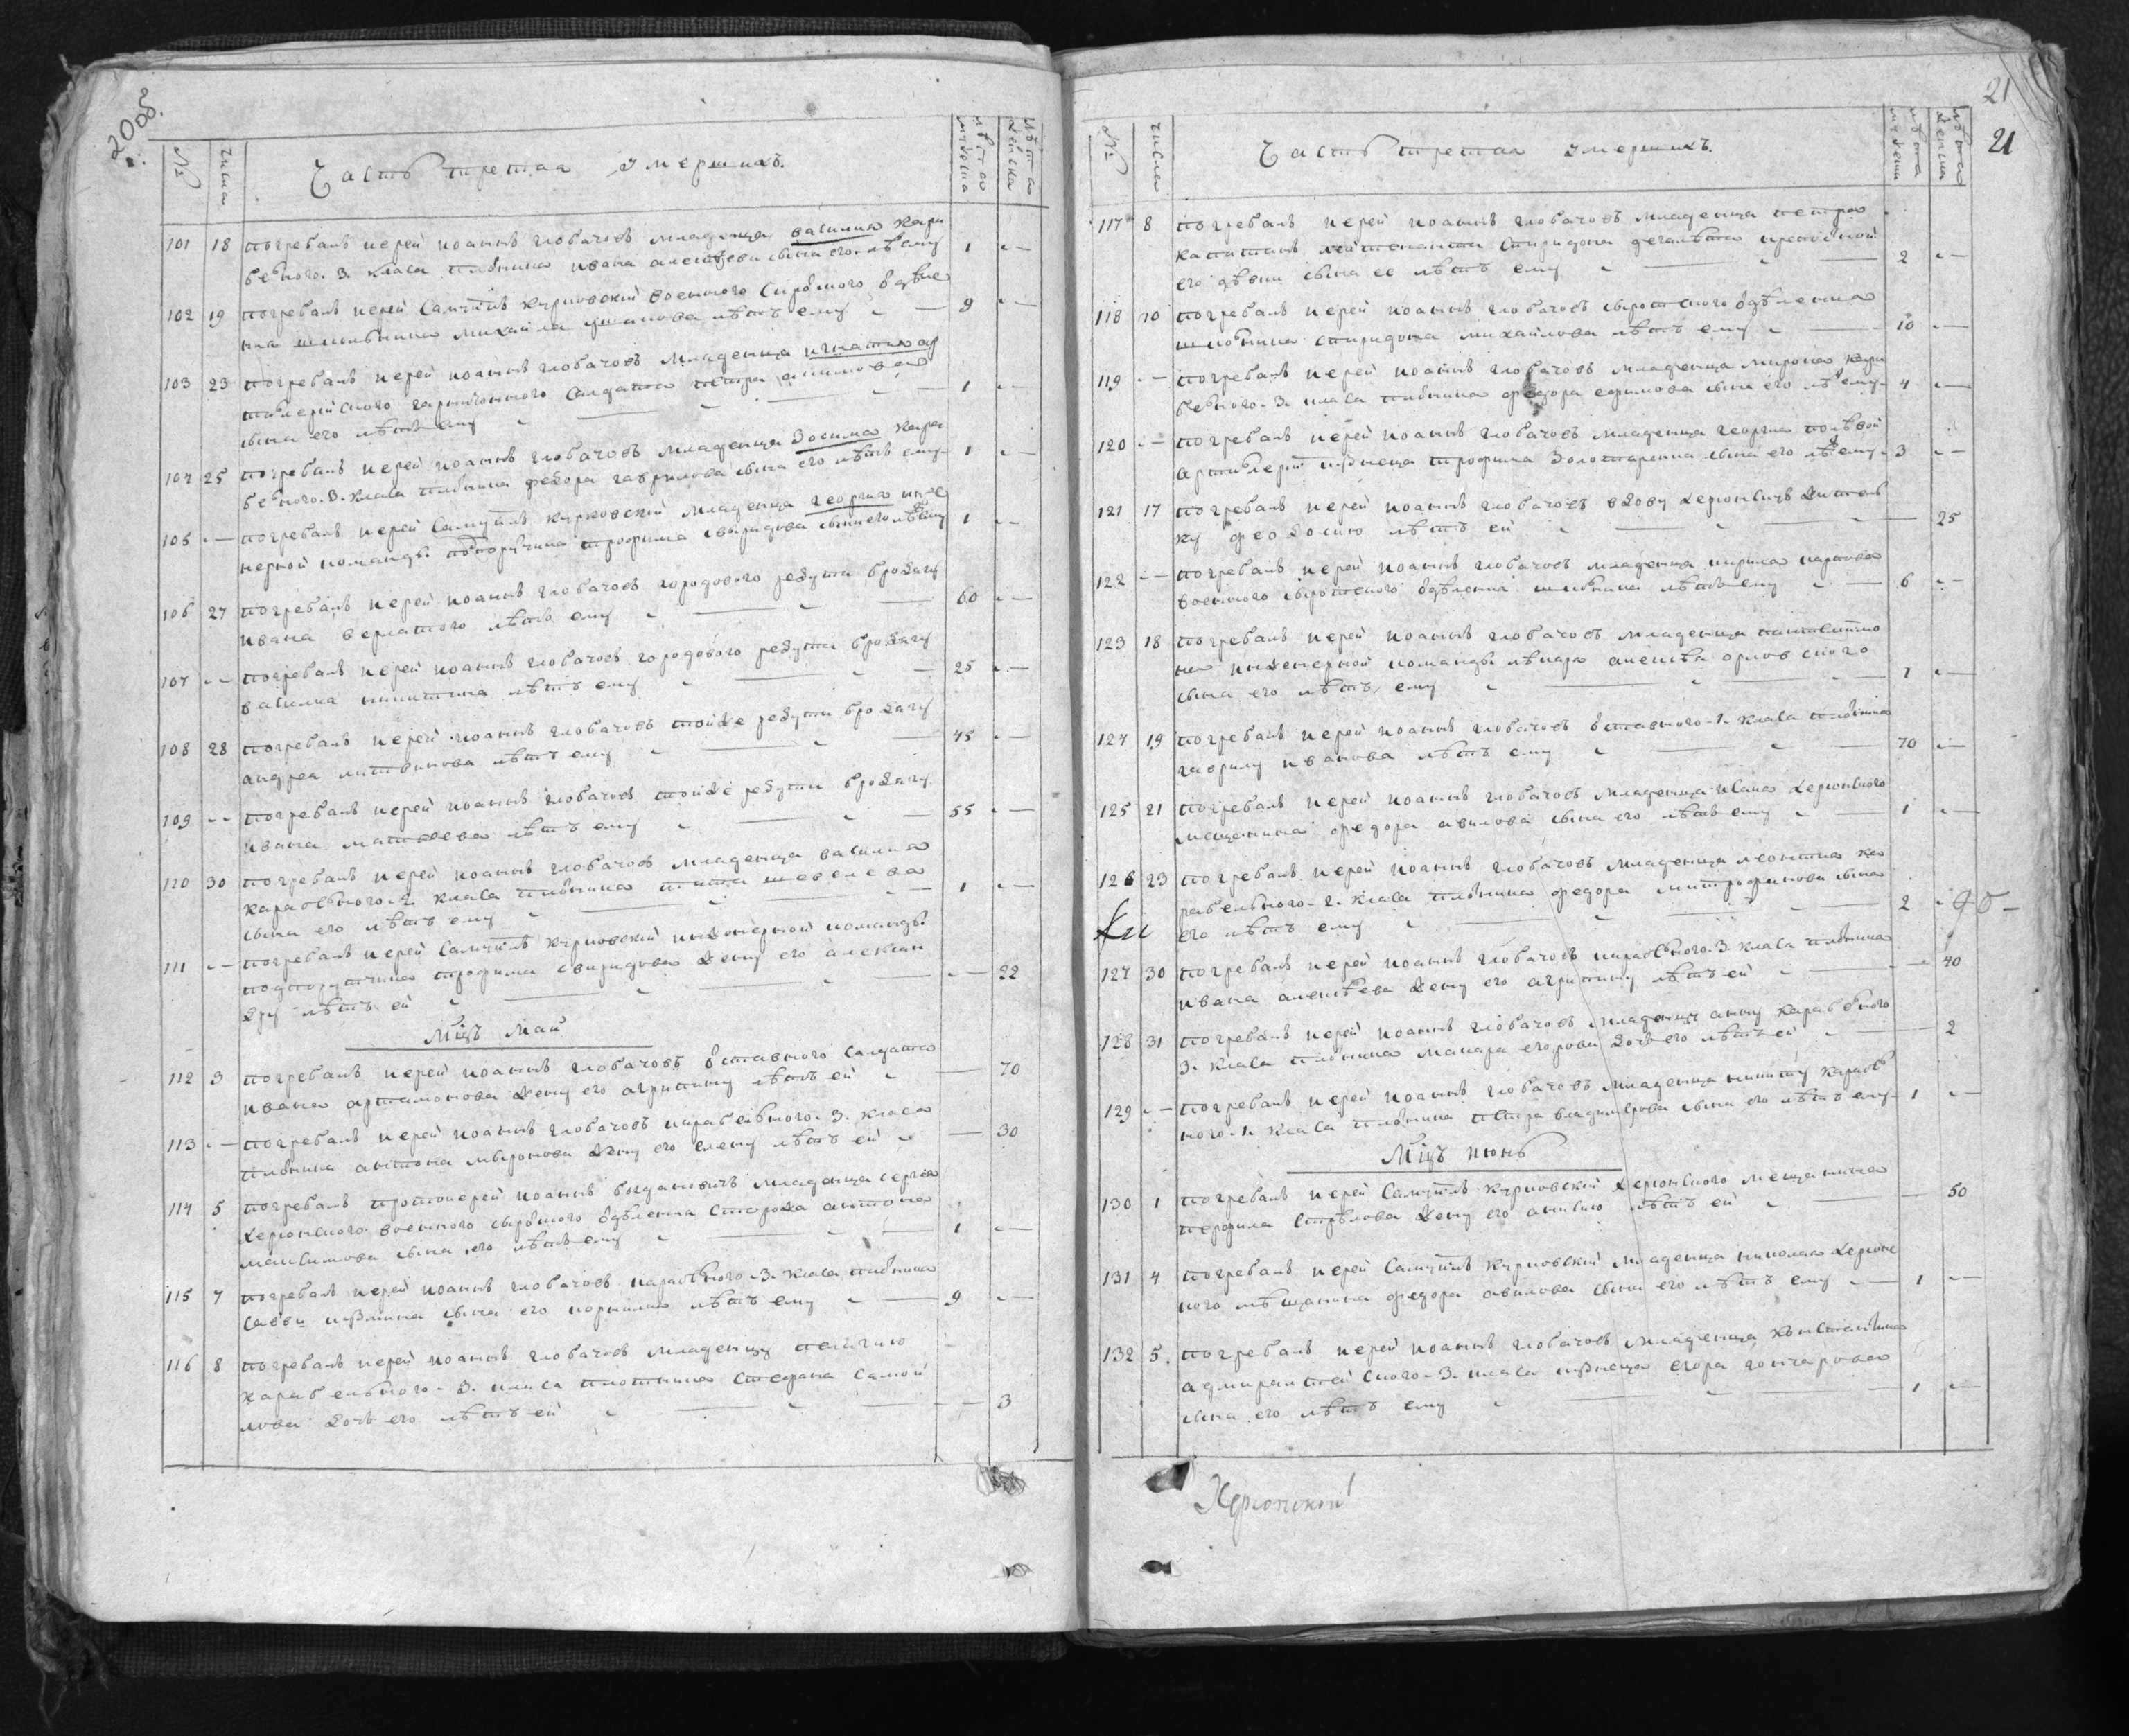 20 об.
№ числа Часть третая умершихъ. лѣта мужеска лѣта женска
101 18 погребалъ иерей иоаннъ глобачовъ младенца василия кара
белного. 3. класа плотника ивана алексѣева сына его лѣтъ ему 1
102 19 погребалъ иерей самуилъ курновский военного сиротского отдѣле
ния школника михайла ушакова лѣтъ ему 9
103 23 погребалъ иерей иоаннъ глобачовъ младенца игнатия ар
тилерийского гарнизонного салдата петра акимова
сына его лѣтъ ему 1
104 25 погребалъ иерей иоаннъ глобачовъ младенца зосима кара
белного. 3. класа плотника федора гаврилова сына его лѣтъ ему 1
105 погребалъ иерей самуилъ курновский младенца георгия инже
нерной команды подпорутчика трофима свиридова сына его лѣтъ ему 1
106 27 погребалъ иерей иоаннъ глобачовъ городового редута бродягу
ивана верлатого лѣтъ ему 60
107 погребалъ иерей иоаннъ глобачовъ городового редута бродягу
василия никитина лѣтъ ему 25
108 28 погребалъ иерей иоаннъ глобачовъ тойже редути бродягу
андрея литвинова лѣтъ ему 45
109 погребалъ иерей иоаннъ глобачовъ тойже редути бродягу
ивана матвеева лѣтъ ему 55
110 30 погребалъ иерей иоаннъ глобачовъ младенца василия
карабелного. 2 класа плотника тита шевелева
сына его лѣтъ ему 1
111 погребалъ иерей самуилъ курновский инженерной команды
подпорутчика трофима свиридова жену его алексан
дру лѣтъ ей 22
Мцъ Маи
112 3 погребалъ иерей иоаннъ глобачовъ отставного салдата
ивана артамонова жену его агрипину лѣтъ ей 70
113 погребалъ иерей иоаннъ глобачовъ карабелного. 3. класа
плотника антона миронова жену его елену лѣтъ ей 30
114 5 погребалъ протоиерей иоаннъ богдановичъ младенца сергея
херсонского военного сиротского отдѣления сторожа антона
максимова сына его лѣтъ ему 1
115 7 погребалъ иерей иоаннъ глобачовъ карабелного. 3. класа плотника
саввы кузмина сына его корнилия лѣтъ ему 9
116 8 погребалъ иерей иоаннъ глобачовъ младенцу пелагию
карабелного. 3. класа плотника стефана самой
лова дочь его лѣтъ ей 3
21
21
№ числа Часть третая умершихъ. лѣта мужеска лѣта женска
117 8 погребалъ иерей иоаннъ глобачовъ младенца петра
капитанъ лейтенанта спиридона крепосной
его дѣвки сына ее лѣтъ ему 2
118 10 погребалъ иерей иоаннъ глобачовъ сиротского отдѣления
школника спиридона михайлова лѣтъ ему 10
119 погребалъ иерей иоаннъ глобачовъ младенца мирона кара
белного. 3. класа плотника федора ефимова сына его лѣтъ ему 4
120 погребалъ иерей иоаннъ глобачовъ младенца георгия полѣвой
артилерии кузнеца трофима золотаренка сына его лѣтъ ему 3
121 17 погребалъ иерей иоаннъ глобачовъ вдову херсонскую жител
ку феодосию лѣтъ ей 25
122 погребалъ иерей иоаннъ глобачовъ младенца кирила карпова
военного сиротского отдѣления школника лѣтъ ему 6
123 18 погребалъ иерей иоаннъ глобачовъ младенца пантелеимо
на инженерной команды лѣкаря алексѣя орловского
сына его лѣтъ ему 1
124 19 погребалъ иерей иоаннъ глобачовъ отставного. 1. класа плотника
гаврилу иванова лѣтъ ему 70
125 21 погребалъ иерей иоаннъ глобачовъ младенца исаия херсонского
мещанина федора авилова сына его лѣтъ ему 1
126 23 погребалъ иерей иоаннъ глобачовъ младенца леонтия ка
рабелного. 2. класа плотника федора митрофанова сына
его лѣтъ ему 2
127 30 погребалъ иерей иоаннъ глобачовъ карабелного. 3. класа плотника
ивана алексѣева жену его агрипину лѣтъ ей 40
128 31 погребалъ иерей иоаннъ глобачовъ младенцу анну карабелного
3. класа плотника макара егорова дочь его лѣтъ ей 2
129 погребалъ иерей иоаннъ глобачовъ младенца никиту карабел
ного. 1. класа плотника петра владимирова сына его лѣтъ ему 1
Мцъ июнь
130 1 погребалъ иерей самуилъ курновский херсонского мещанина
перфила стрѣлова жену его анисию лѣтъ ей 50
131 4 погребалъ иерей самуилъ курновский младенца николая херсонс
кого мѣщанина федора авилова сына его лѣтъ ему 1
132 5. погребалъ иерей иоаннъ глобачовъ младенца константина
адмиралтейского. 3. класа кузнеца егора гончарова
сына его лѣтъ ему 1
Херсонской